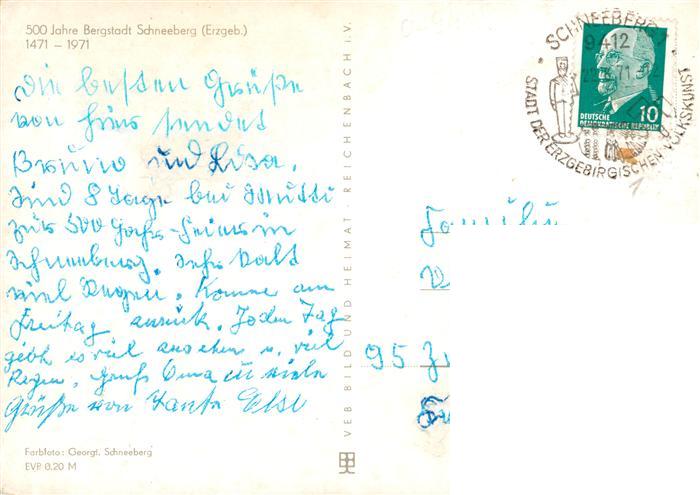 500 Jahre Bergstadt Schneeberg (Erzgeb.)
1471 – 1971
Die besten Grüße
von hier sendet
Bruno und Lisa.
Sind 8 Tage bei Mutti
zur 500 Jahr-Feier in
Schneeberg. Sehr kalt
viel Regen. Komme am
Freitag zurück. Jeden Tag
gibt es viel ansehen u. viel
Regen. Gruß Oma u viele
Grüße von Tante Else
Farbfoto: Georgi, Schneeberg
EVP 0,20 M
VEB BILD UND HEIMAT · REICHENBACH i.V.
SCHNEEBERG 1
9412
71
STADT DER ERZGEBIRGISCHEN VOLKSKUNST
DEUTSCHE
DEMOKRATISCHE REPUBLIK
10
Familie
95